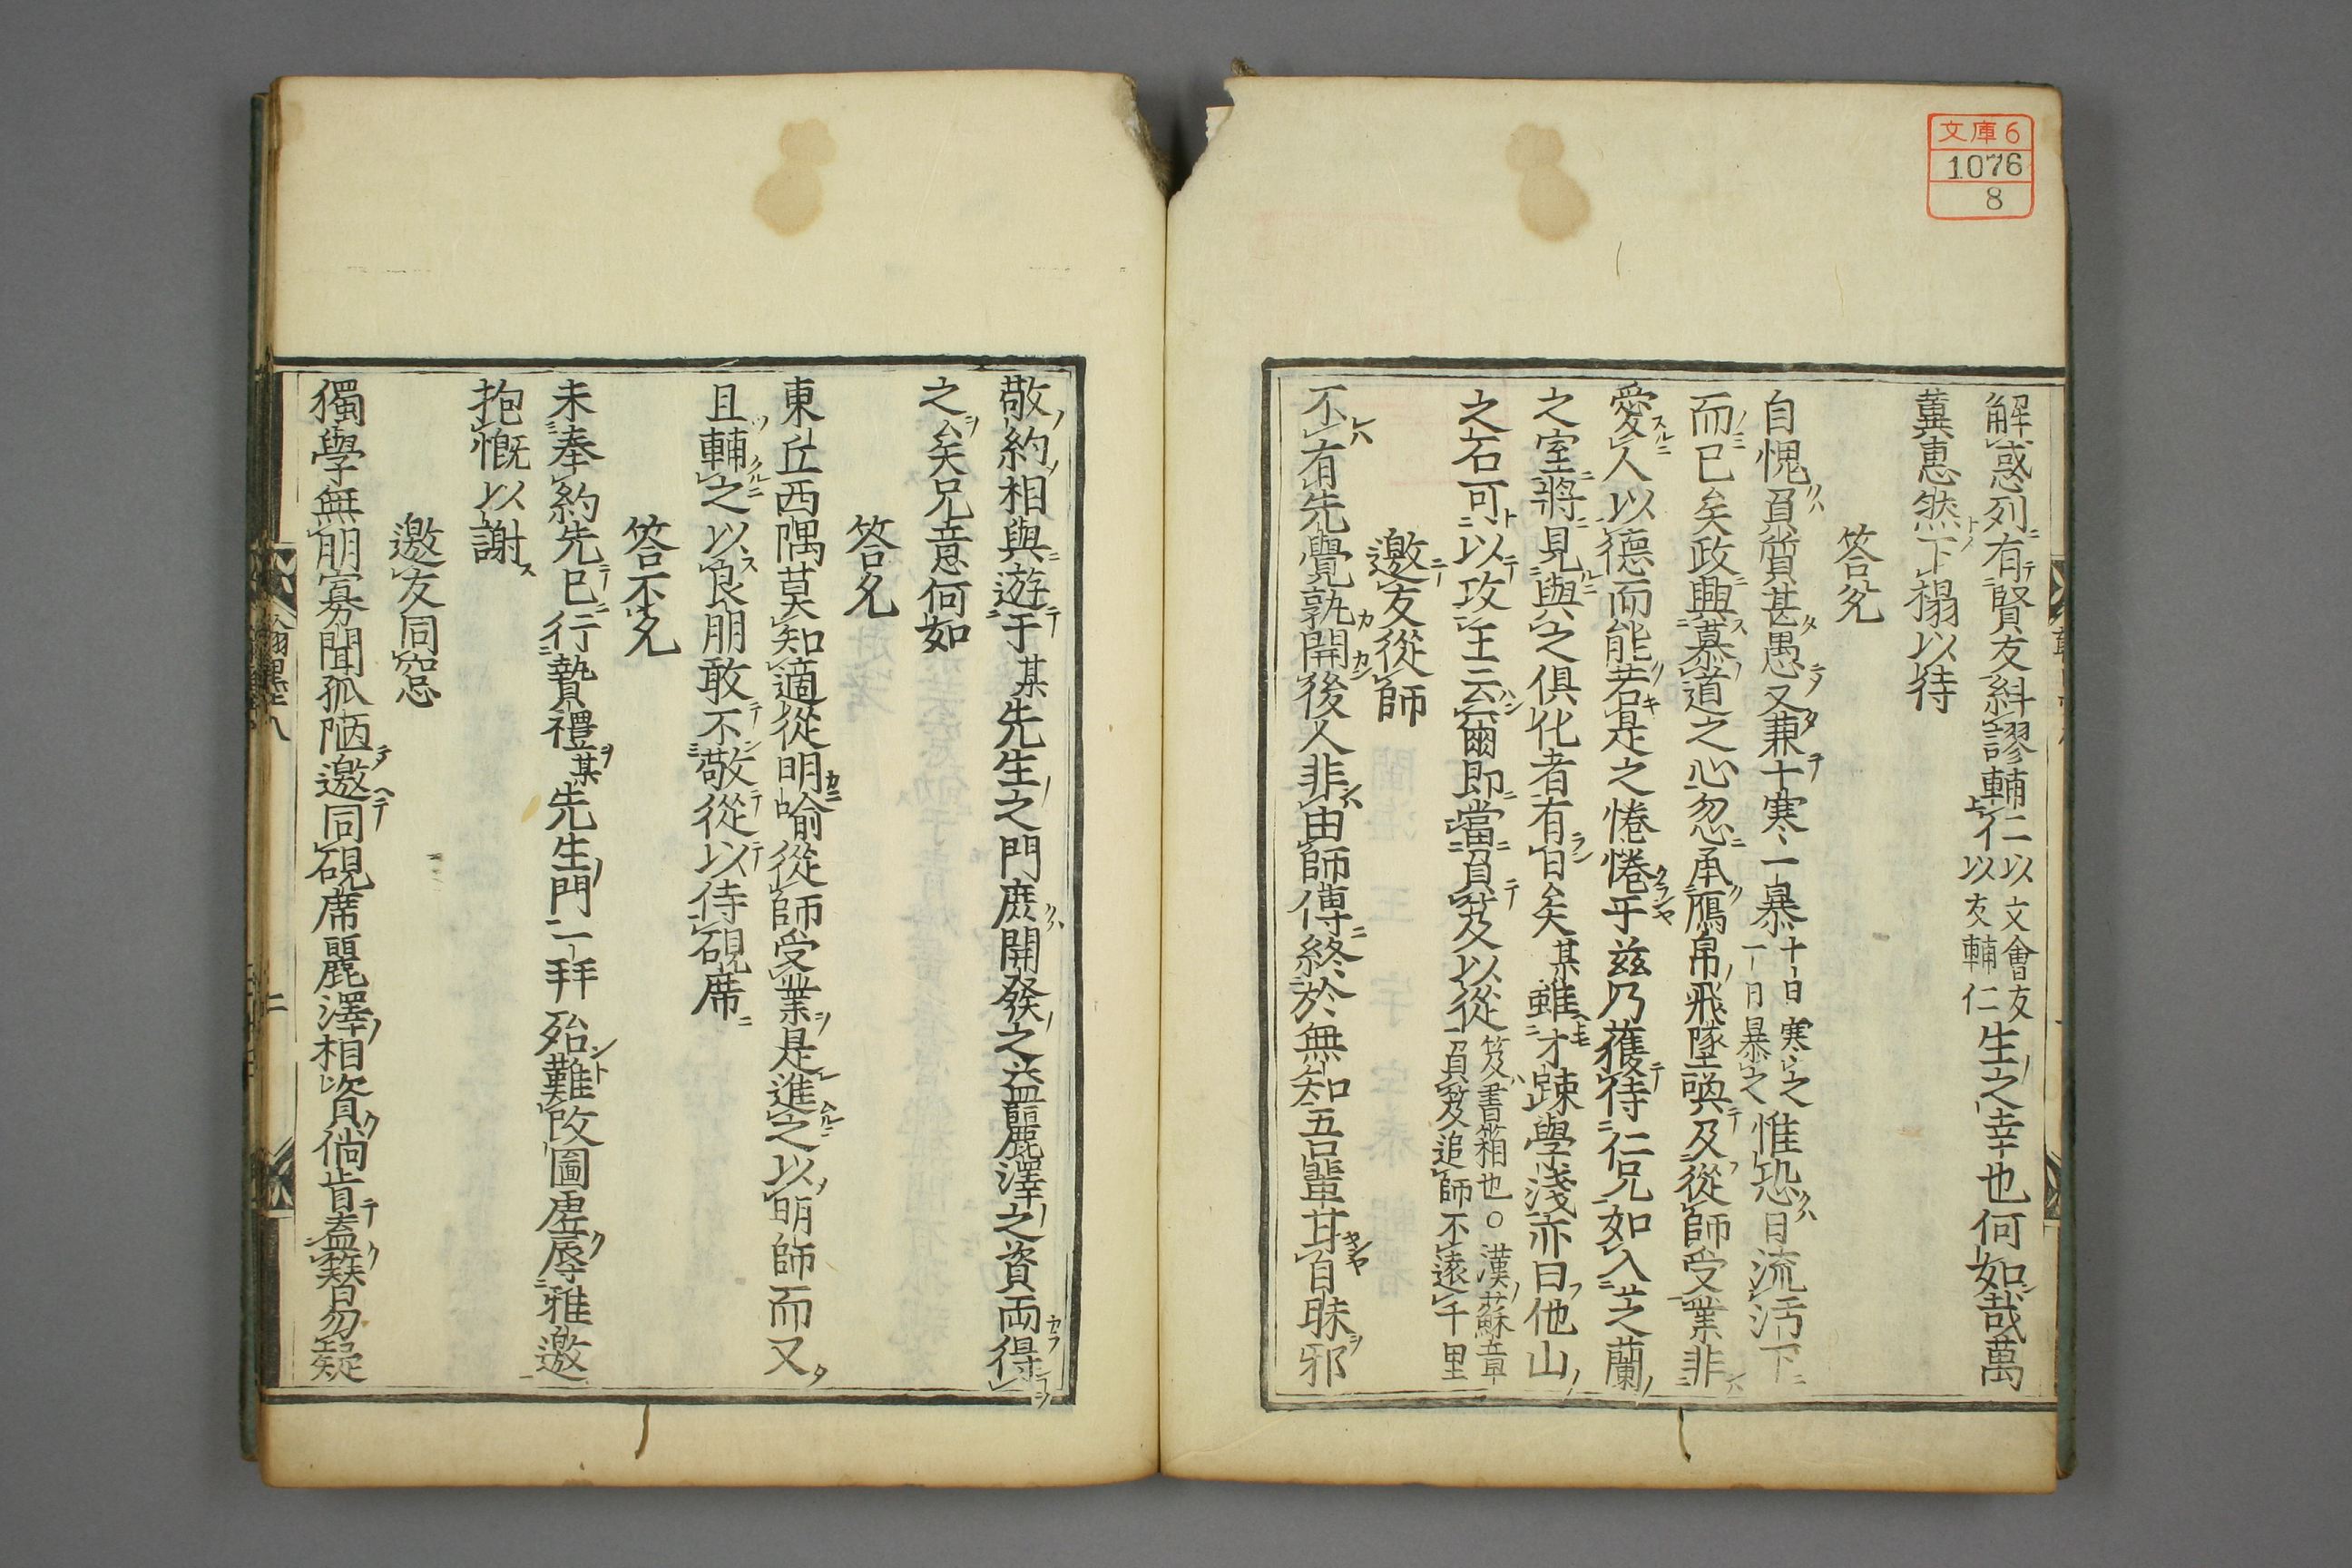 文庫6
1076
8
解惑列有賢友糾謬輔仁以文會友以友輔仁生之幸也何如哉萬
冀惠然下榻以待
答允
自愧負質甚愚又兼十寒一暴十日寒之一日暴之惟恐日流汚下
而已矣政興慕道之心忽承鴈帛飛墜喚及從師受業非
愛人以德而能若是之惓惓乎玆乃獲待仁兄如入芝蘭
之室將見與之俱化者有日矣某雖才踈學淺亦曰他山
之石可以攻玉云爾即當負笈以從笈書箱也○漢蘇章負笈追師不遠千里
邀友從師
不有先覺孰開後人非由師傳終於無知吾輩甘自昧邪
敬約相與遊于某先生之門庶開發之益麗澤之資両得
之矣兄意何如
答允
東丘西隅莫知適從明喻從師受業是進之以明師而又
且輔之以良朋敢不敬從以待硯席
答不允
未奉約先已行贄禮某先生門二拜殆難改圖虚辱雅邀
抱慨以謝
邀友同窓
獨學無朋寡聞孤陋邀同硯席麗澤相資倘肯盍簪昜疑
翰墨八
二